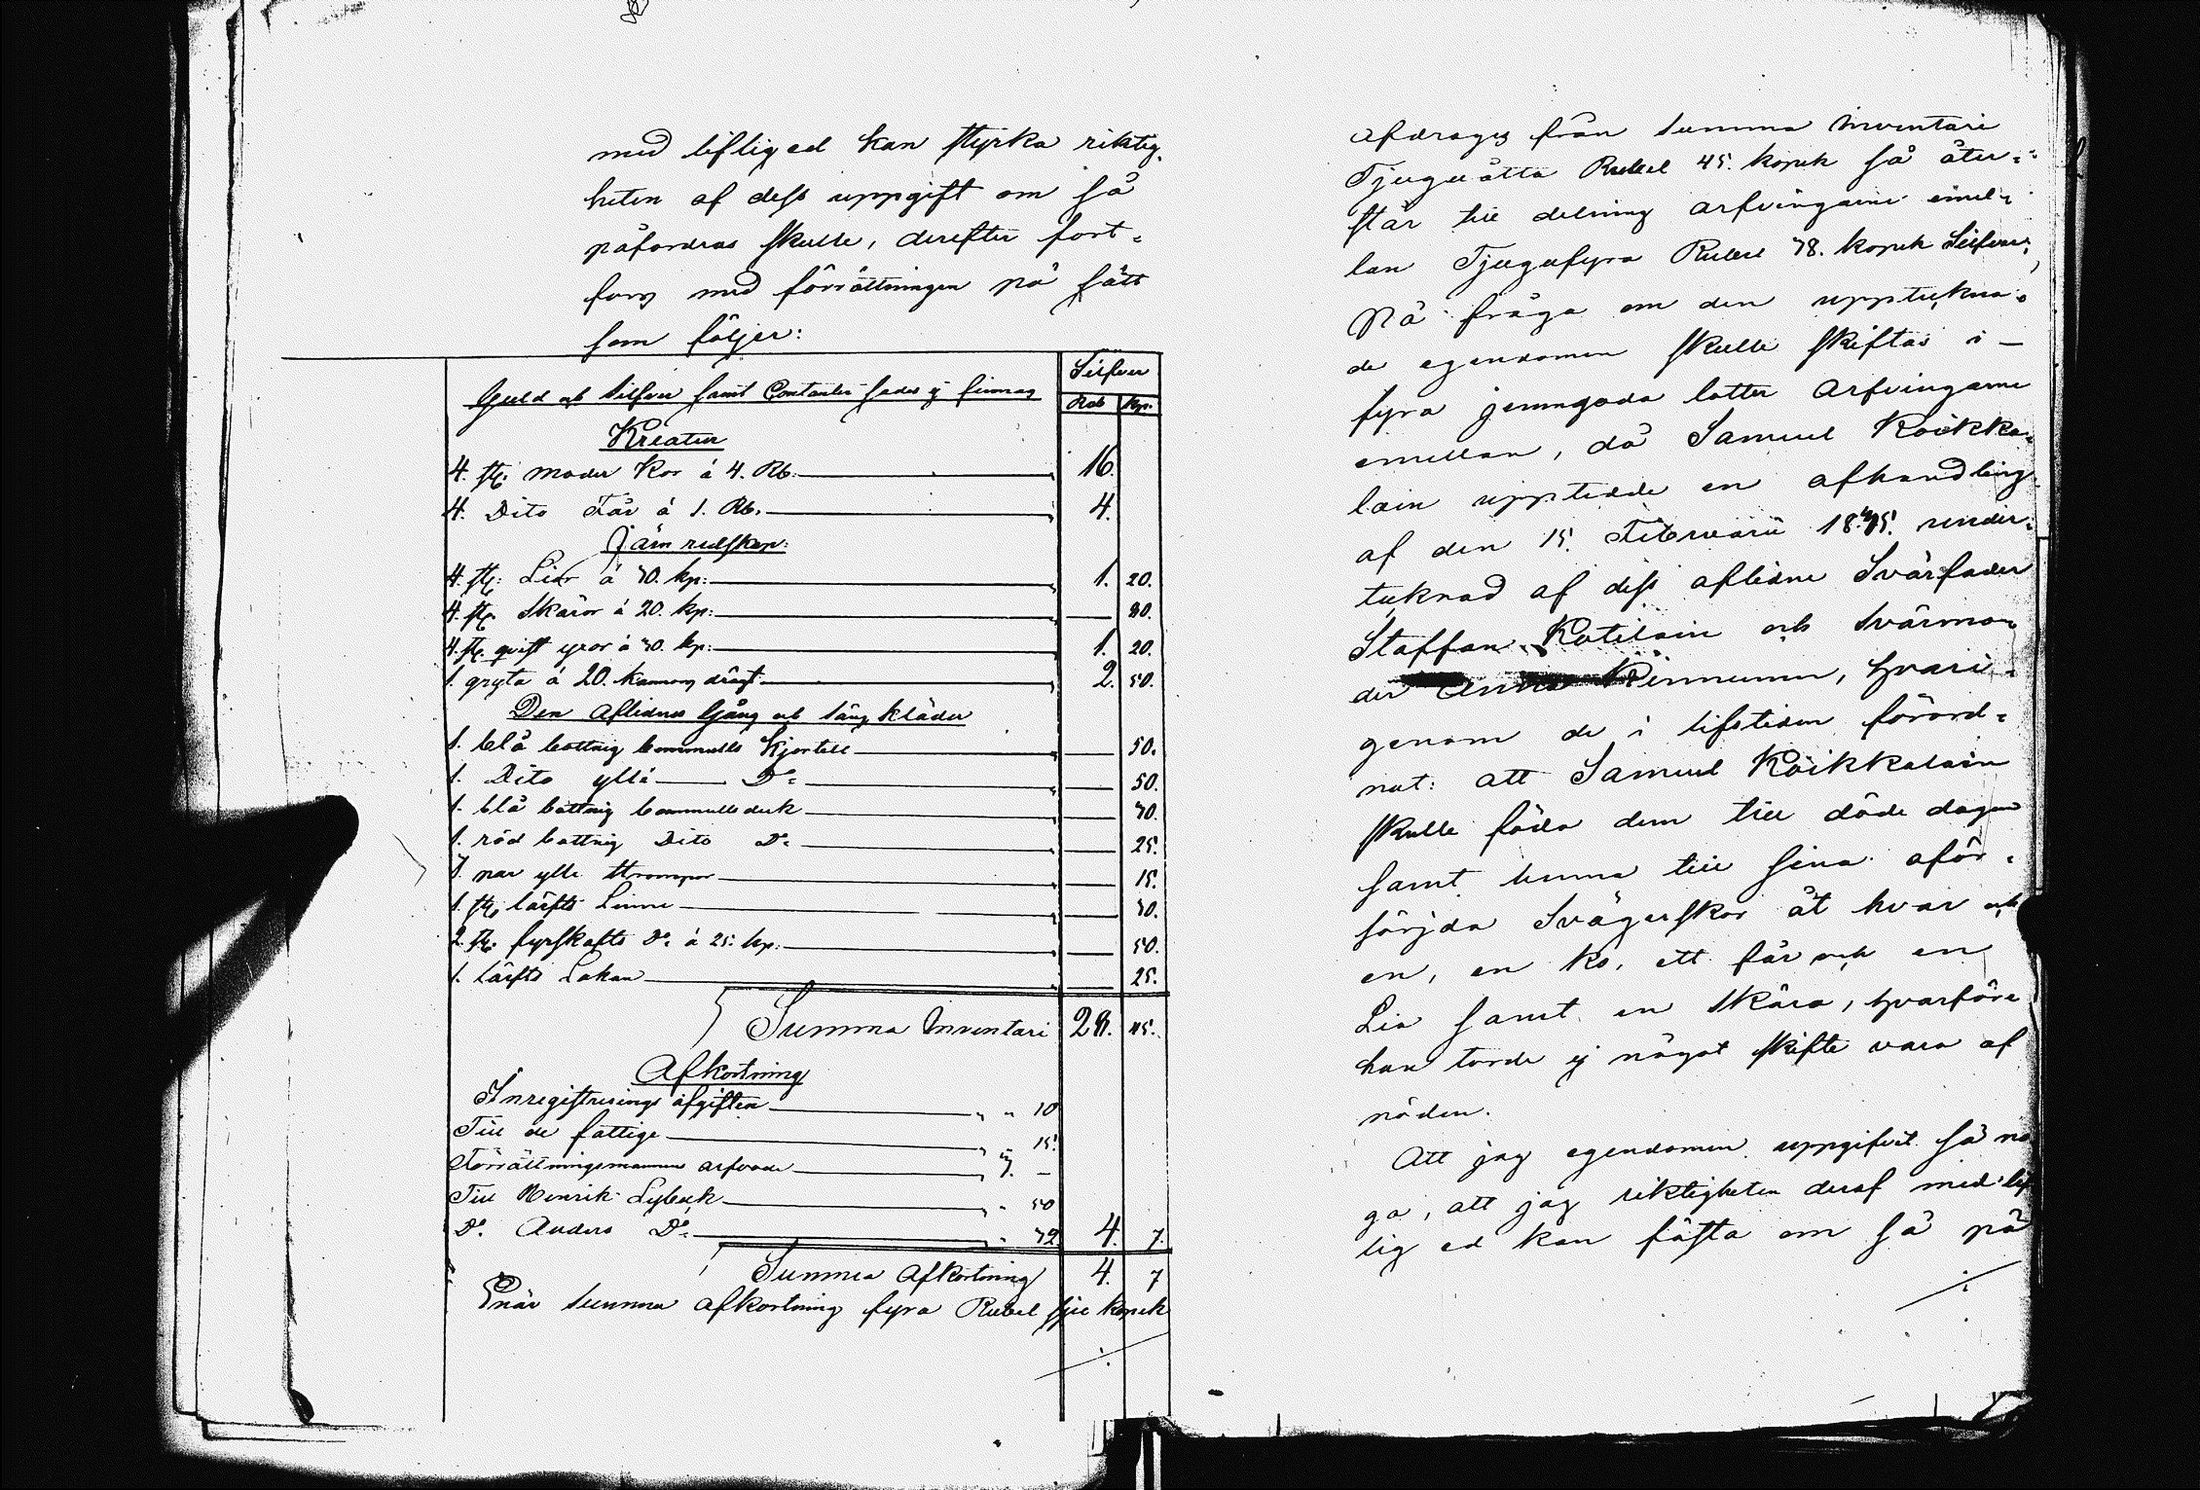 med liflig ed kan styrka riktig-
heten af dess uppgift om så
påfordras skulle, derefter fort-
forg med förrättningen på sätt
som följer:
Silfver
Guld och Silfver samt Contanter sades ej finnas
Rub Kop.
Kreatur
4. st. moder Kor á 4. Rb. 16.
4. Dito Får á 1. Rb. 4.
Järn redskap:
4. st: Liar á 30. kp: 1. 20.
4. st. Skäror á 20. kp: 80.
4. st. qvist yxor á 30. kp: 1. 20.
1. gryta á 20. kannors drägt 2. 50.
Den Aflidnes Gång och Säng kläder
1. blå bottnig bommulls Kjortell 50.
1. Dito ylle D:o 50.
1. blå bottnig bommulls duk 30.
1. röd bottnig Dito D:o 25.
1. par ylle strumpor 15.
1. st. lärfts Linne 30.
2. st. fyrskafts D:o á 25. kp. 50.
1. lärfts Lakan 25.
Summa Inventari 28. 45.
Afkortning
Inregistrerings afgiften " " 10
Till de fattige " 15.
Förrättningsmannens arfvode " 3. –
Till Henrik Lybeck " " 50
D:o Anders D:o " " 32. 4. 7.
Summa Afkortning 4. 7
Enär Summa afkortning fyra Rubel sju kopek
./.
afdrages från Summa Inventari
Tjuguåtta Rubel 45. kopek så åter-
står till delning arfvingarne emel-
lan Tjugufyra Rubel 38. kopek Silfver,
På fråga om den upptekna-
de egendomen skulle skiftas i
fyra jemngoda lotter Arfvingarne
emellan, då Samuel Koikka-
lain uppteedde en afhandling
af den 15. Februarii 1845. under-
teknad af dess aflidne Svärfader
Staffan Kotilain och Svärmo-
der Anna Kinnunen, hvari-
genom de i lifstiden förord-
nat: att Samuel Koikkalain
skulle föda dem till döde dagar
samt lemna till sina oför-
sörjda Svägerskor åt hvar och
en, en ko, ett får och en
Lia samt en Skära, hvarföre
han torde ej något skifte vara af
nöden.
Att jag egendomen uppgifvit så no
ga, att jag riktigheten deraf med lif
lig ed kan fästa om så på
./.